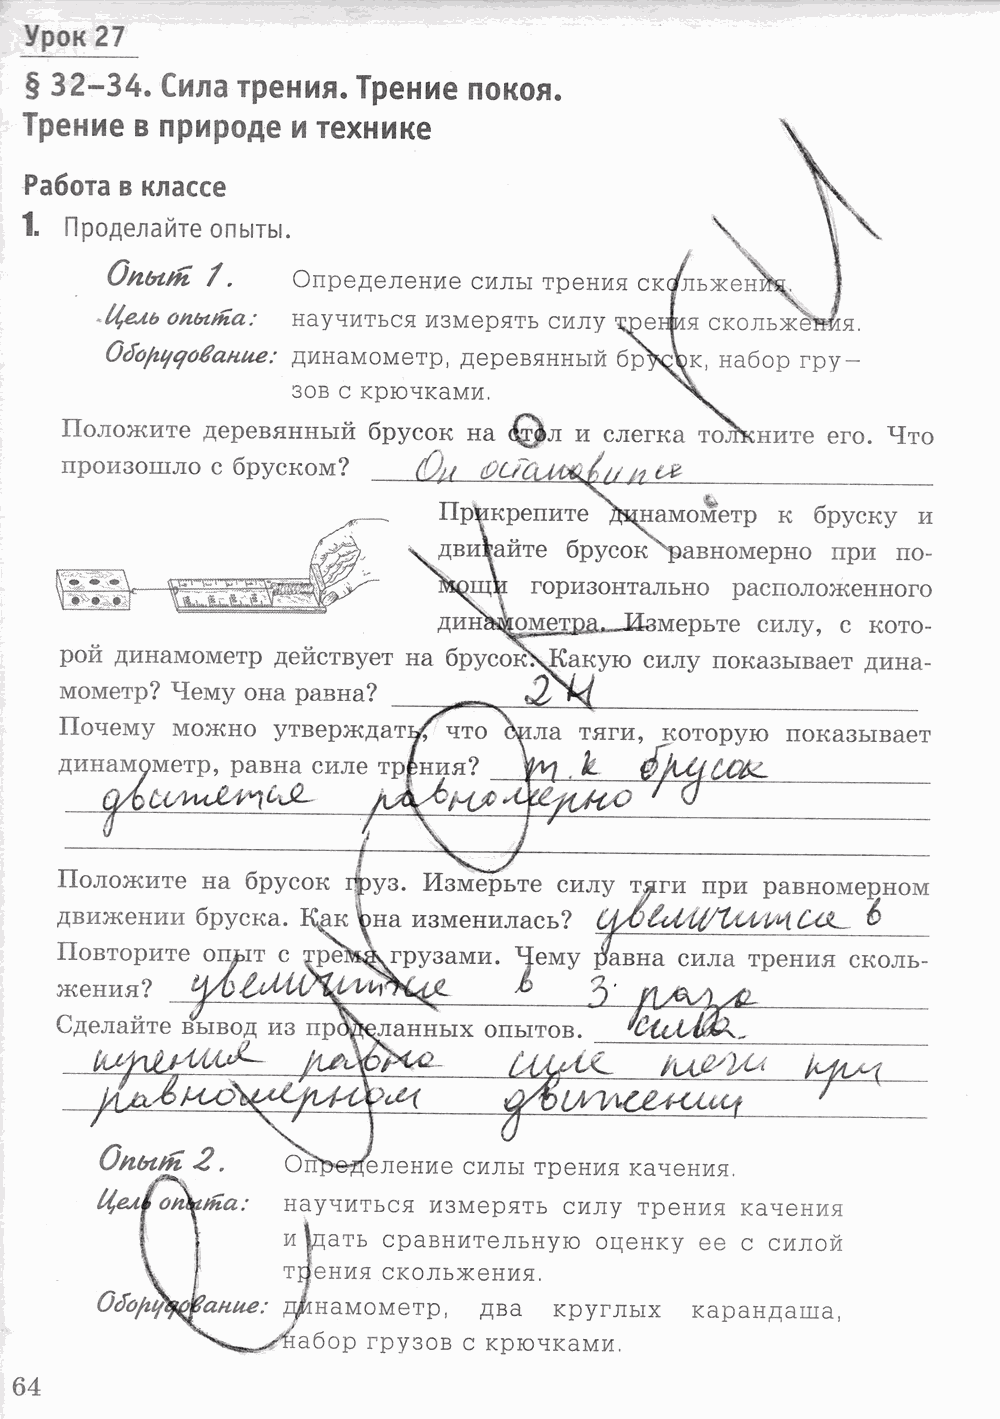 Урок 27
§ 32–34. Сила трения. Трение покоя.
Трение в природе и технике
Работа в классе
1. Проделайте опыты.
Опыт 1. Определение силы трения скольжения.
Цель опыта: научиться измерять силу трения скольжения.
Оборудование: динамометр, деревянный брусок, набор гру–
зов с крючками.
Положите деревянный брусок на стол и слегка толкните его. Что
произошло с бруском? Он остановился
Прикрепите динамометр к бруску и
двигайте брусок равномерно при по-
мощи горизонтально расположенного
динамометра. Измерьте силу, с кото-
рой динамометр действует на брусок. Какую силу показывает дина-
мометр? Чему она равна? 2 Н
Почему можно утверждать, что сила тяги, которую показывает
динамометр, равна силе трения? т.к брусок
движется равномерно
Положите на брусок груз. Измерьте силу тяги при равномерном
движении бруска. Как она изменилась? увеличится в
Повторите опыт с тремя грузами. Чему равна сила трения сколь-
жения? увеличится в 3 раза
Сделайте вывод из проделанных опытов. сила
трения равна силе тяги при
равномерном движении
Опыт 2. Определение силы трения качения.
Цель опыта: научиться измерять силу трения качения
и дать сравнительную оценку ее с силой
трения скольжения.
Оборудование: динамометр, два круглых карандаша,
набор грузов с крючками.
64